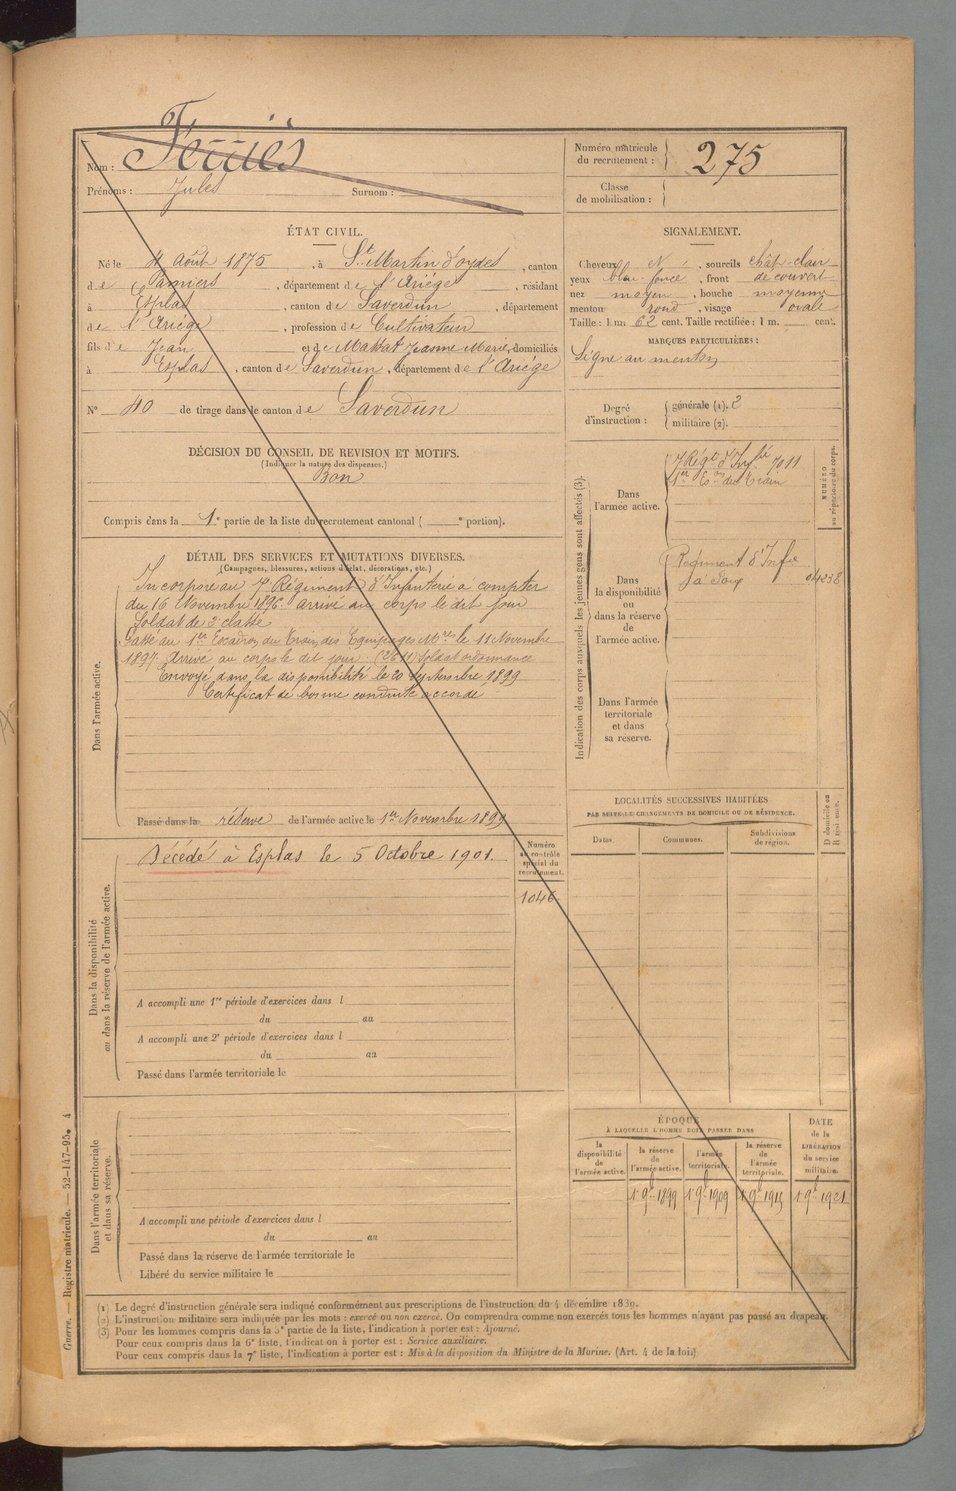 Nom :
Prénoms : Jules Surnom :
Numéro matricule du recrutement : 275
Classe de mobilisation :
ÉTAT CIVIL.
Né le 4 Août 1875, à St Martin d'oydes, canton
de Pamiers, département de l'Ariège, résidant
à Esplas, canton de Saverdun, département
de l'Ariège, profession de Cultivateur
fils de Jean et de Jeanne Marie, domiciliés
à Esplas, canton de Saverdun, département de l'Ariège
N° 40 de tirage dans le canton de Saverdun
SIGNALEMENT.
Cheveux N, sourcils chât-clair
yeux bleu foncé, front découvert
nez moyen, bouche moyenne
menton rond, visage ovale
Taille : 1 m. 62 cent. Taille rectifiée : 1 m. cent.
MARQUES PARTICULIÈRES :
Signe au menton
Degré d'instruction :
générale (1). 2
militaire (2).
DÉCISION DU CONSEIL DE REVISION ET MOTIFS.
(Indiquer la nature des dispenses.)
Bon
Compris dans la 1e partie de la liste du recrutement cantonal ( e portion).
DÉTAIL DES SERVICES ET MUTATIONS DIVERSES.
(Campagnes, blessures, actions d'éclat, décorations, etc.)
Dans l'armée active.
Incorporé au 7e Régiment d'Infanterie à compter
du 16 Novembre 1896. arrivé au corps le dit jour
Soldat de 2e classe
Passé au 1er Escadron du Train des Equipages Mres le 11 Novembre
1897. Arrivé au corps le dit jour. Soldat ordonnance
Envoyé dans la disponibilité le 20 Septembre 1899
Certificat de bonne conduite accordé
Passé dans la réserve de l'armée active le 1er Novembre 1899
Indication des corps auxquels les jeunes gens sont affectés (3).
NUMÉRO au répertoire du corps.
Dans l'armée active.
7e Régt d'Infie 7011
1er Eson du Train
Dans la disponibilité ou dans la réserve de l'armée active.
Régiment d'Infie
à Foix 04238
Dans l'armée territoriale et dans sa réserve.
LOCALITÉS SUCCESSIVES HABITÉES
PAR SUITE DE CHANGEMENTS DE DOMICILE OU DE RÉSIDENCE.
Dates. Communes. Subdivisions de région. D domicile ou R résidence.
Dans la disponibilité ou dans la réserve de l'armée active.
Décédé à Esplas le 5 Octobre 1901.
Numéro au contrôle spécial du recrutement.
1046
A accompli une 1re période d'exercices dans l
du au
A accompli une 2e période d'exercices dans l
du au
Passé dans l'armée territoriale le
Dans l'armée territoriale et dans sa réserve.
A accompli une période d'exercices dans l
du au
Passé dans la réserve de l'armée territoriale le
Libéré du service militaire le
ÉPOQUE
À LAQUELLE L'HOMME DOIT PASSER DANS
la disponibilité de l'armée active.
la réserve de l'armée active.
l'armée territoriale.
la réserve de l'armée territoriale.
DATE de la LIBÉRATION du service militaire.
1 9bre 1899 1 9bre 1909 1 9bre 1915 1 9bre 1921
(1) Le degré d'instruction générale sera indiqué conformément aux prescriptions de l'instruction du 4 décembre 1889.
(2) L'instruction militaire sera indiquée par les mots : exercé ou non exercé. On comprendra comme non exercés tous les hommes n'ayant pas passé au drapeau.
(3) Pour les hommes compris dans la 5e partie de la liste, l'indication à porter est : Ajourné.
Pour ceux compris dans la 6e liste, l'indication à porter est : Service auxiliaire.
Pour ceux compris dans la 7e liste, l'indication à porter est : Mis à la disposition du Ministre de la Marine. (Art. 4 de la loi.)
Guerre. — Registre matricule. — 52-147-95. 4